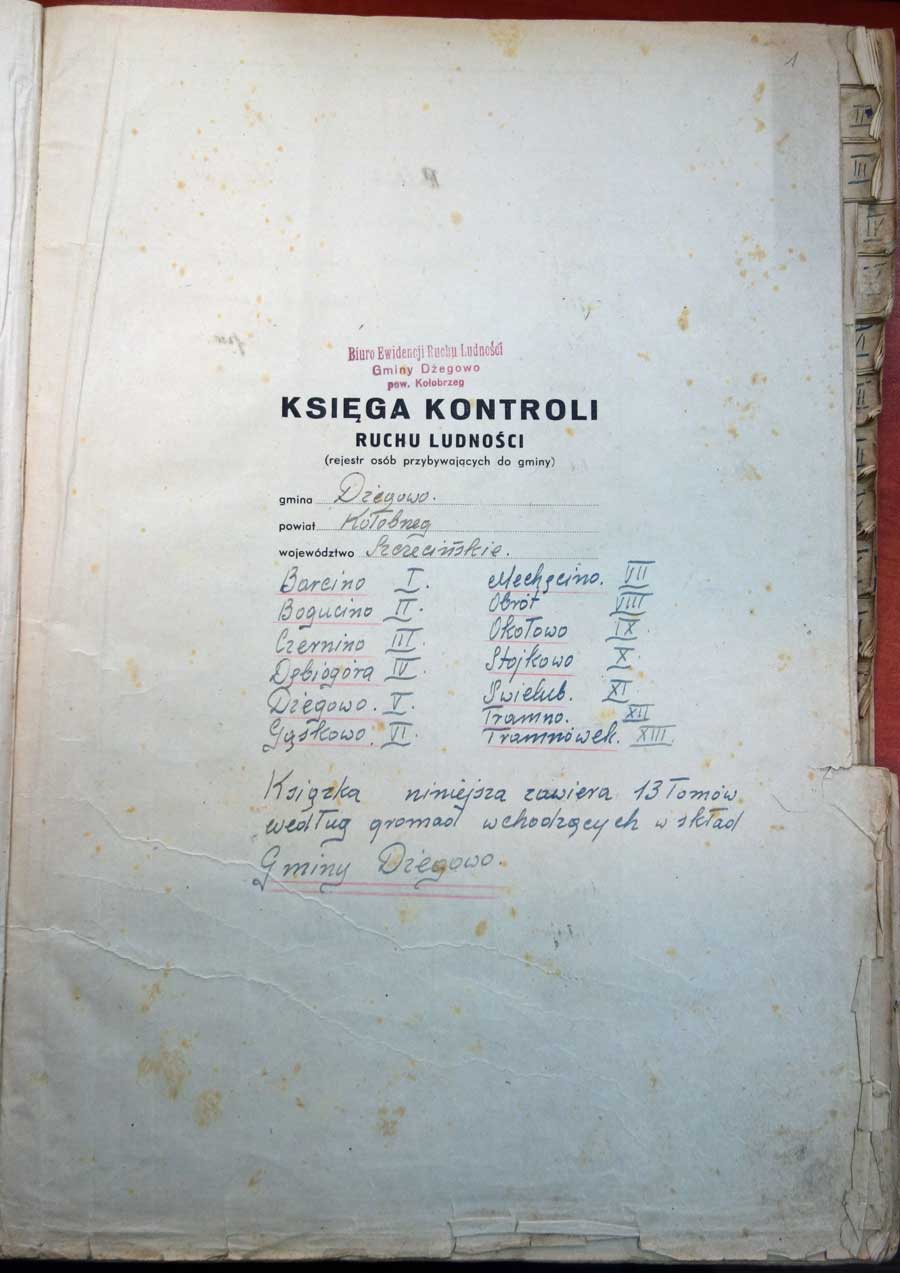 1
II
III
IV
Biuro Ewidencji Ruchu Ludności
Gminy Dżegowo
pow. Kołobrzeg
KSIĘGA KONTROLI
RUCHU LUDNOŚCI
(rejestr osób przybywających do gminy)
gmina Dżegowo.
powiat Kołobrzeg
województwo Szczecińskie.
Barcino I. Mechęcino. VII
Bogucino II. Obrót VIII
Czernino III. Okołowo IX.
Dębiogóra IV. Stojkowo X.
Dżegowo. V. Świelub. XI.
Gąskowo. VI. Tramno. XII
Tramnówek. XIII.
Książka niniejsza zawiera 13 tomów
według gromad wchodzących w skład
Gminy Dżegowo.